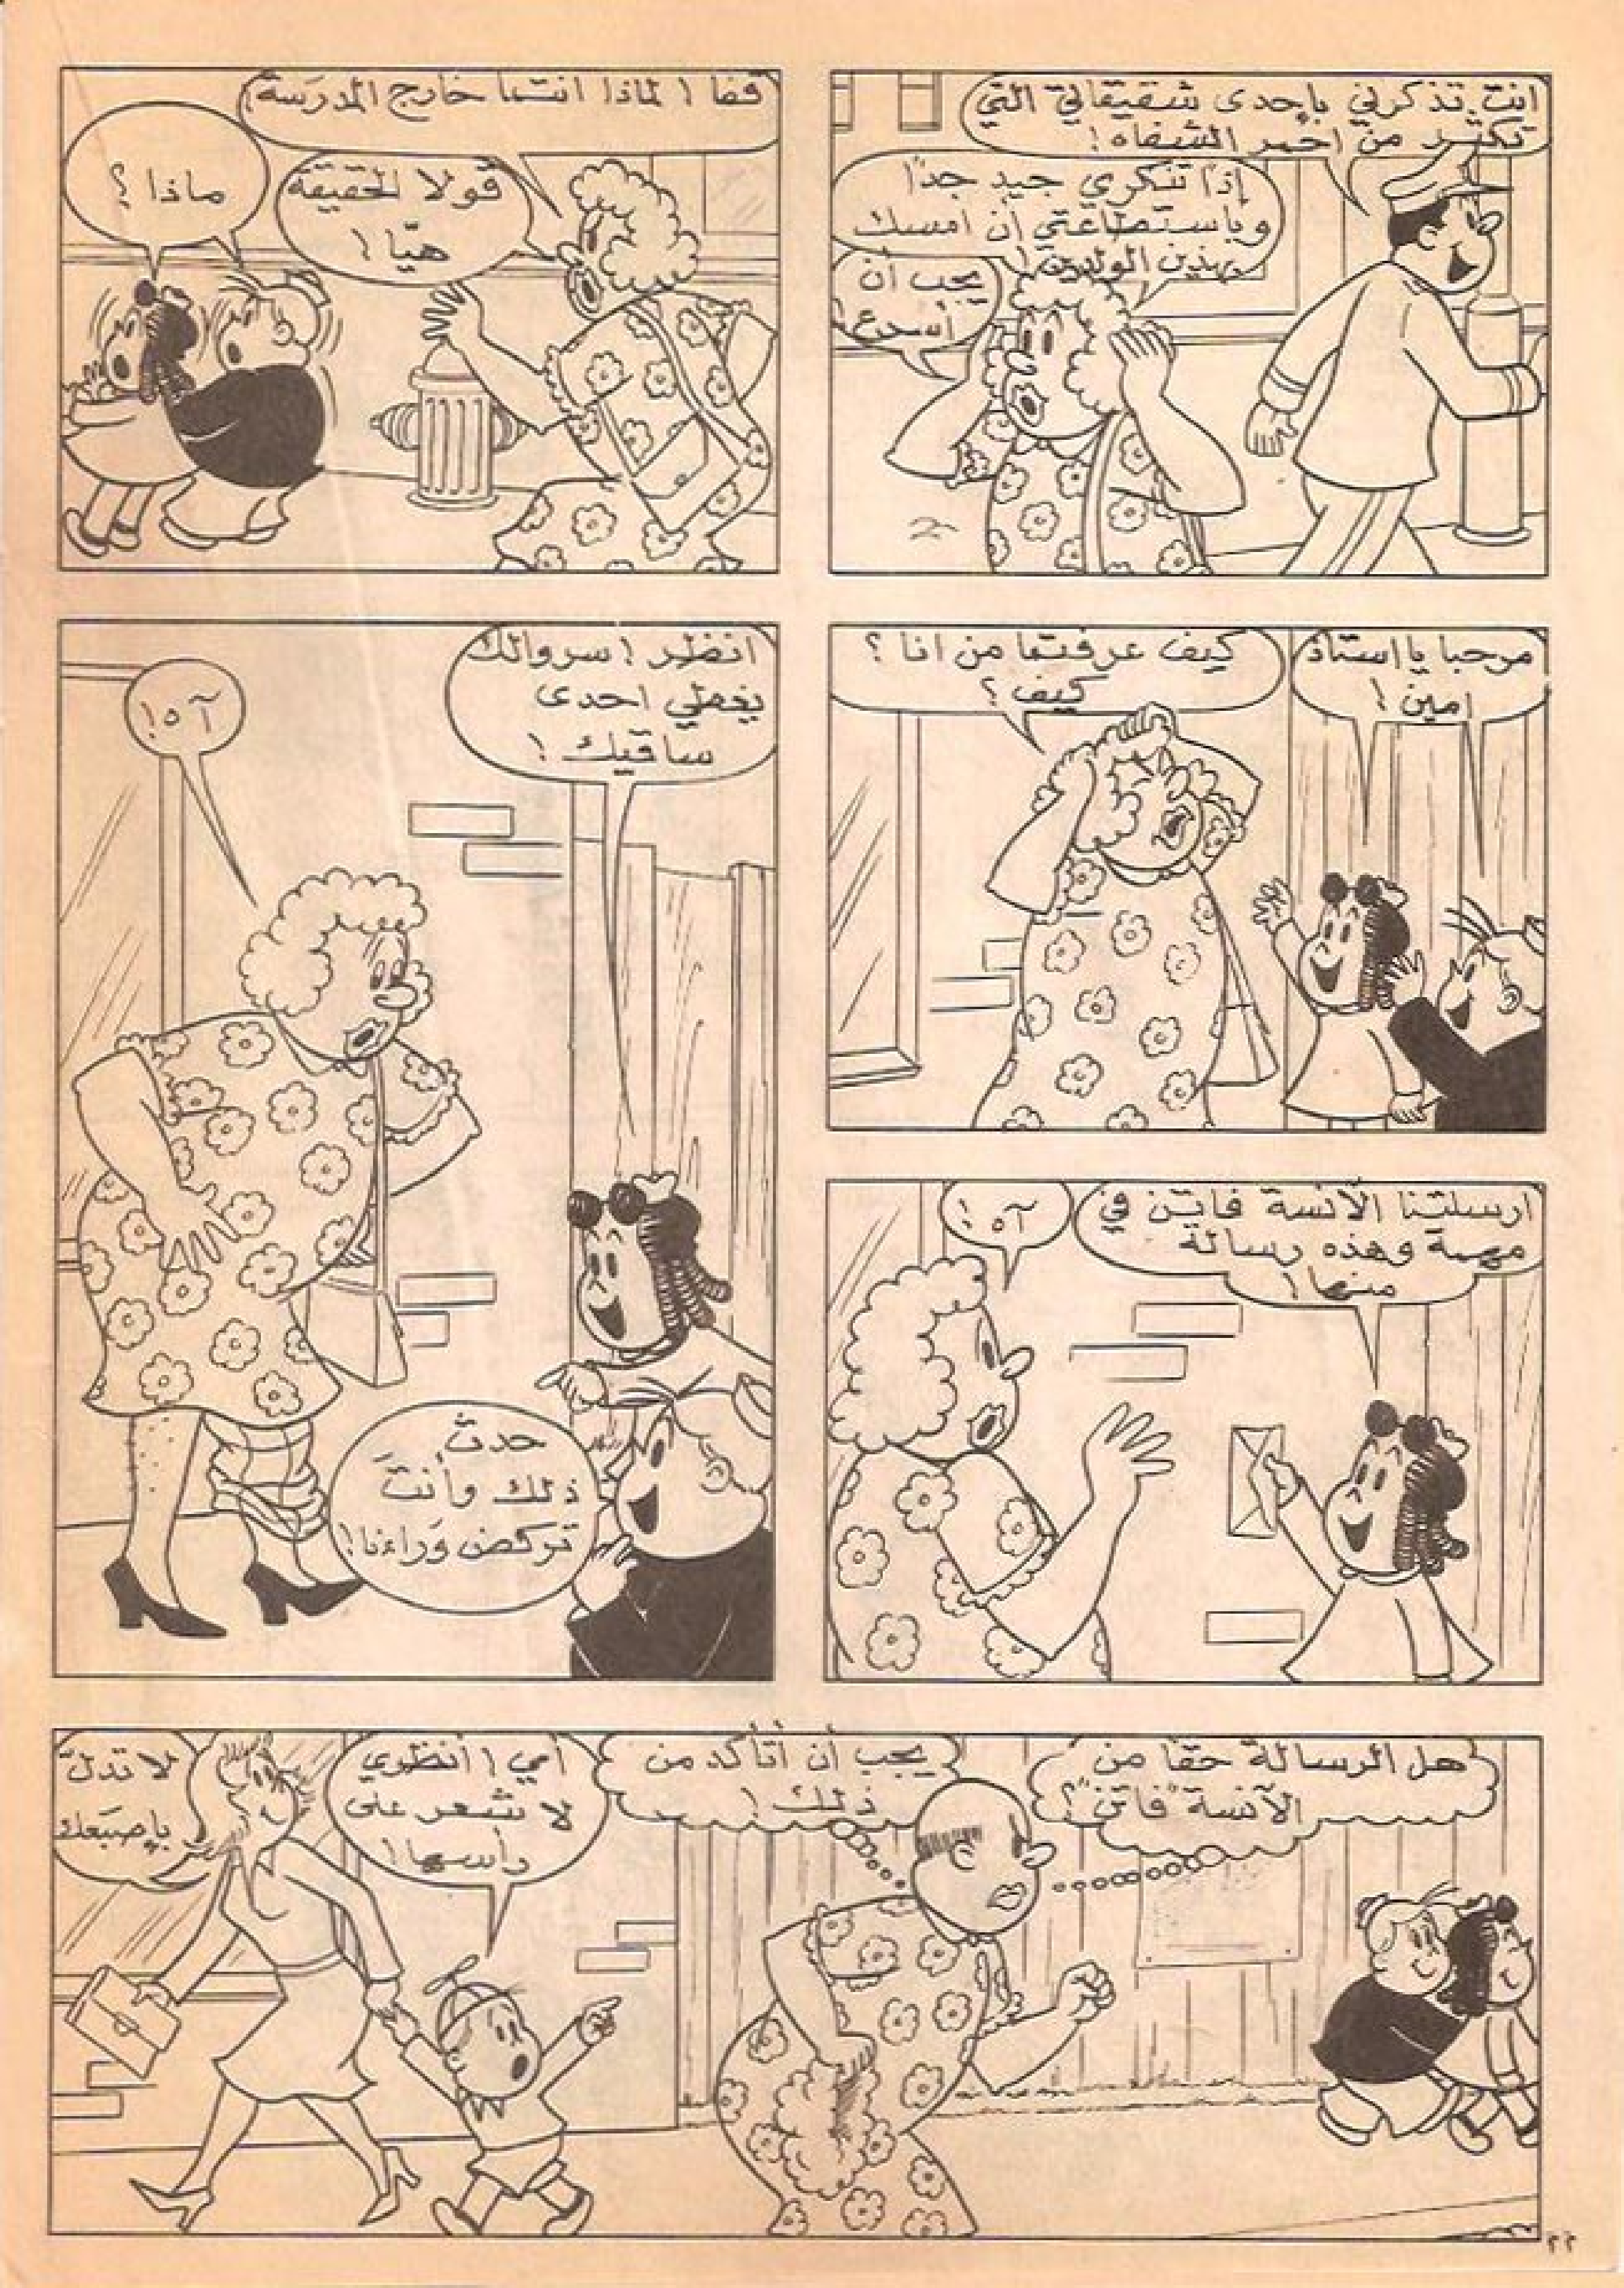 انت تذكرني بإحدى شقيقاتي التي
تكثر من احمر الشفاه!
إذًا تنكري جيد جدًا
وباستطاعتي ان امسك
بهذين الولدين!
يجب أن
أسرع!
قفا! لماذا انتما خارج المدرسة؟
قولا الحقيقة
هيّا!
ماذا؟
مرحبا يا استاذ
امين!
كيف عرفتما من انا؟
كيف؟
ارسلتنا الآنسة فاتن في
مهمة وهذه رسالة
منها!
آه!
انظر! سروالك
يغطي احدى
ساقيك!
آه!
حدث
ذلك وأنتَ
تركض وَراءنا!
هل الرسالة حقًا من
الآنسة "فاتن"؟
يجب أن أتأكد من
ذلك!
أمي! أنظري
لا شعر على
رأسها!
لا تدلّ
بإصبَعك
٢٢